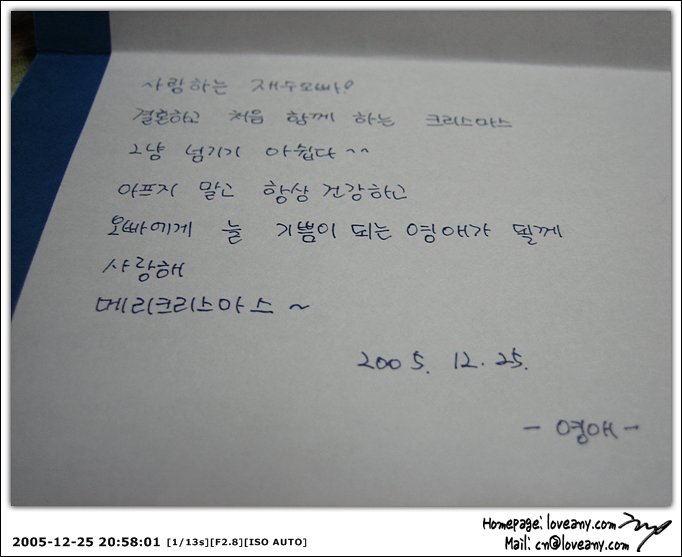 사랑하는 재수오빠!
결혼하고 처음 함께 하는 크리스마스
그냥 넘기기 아쉽다 ^^
아프지 말고 항상 건강하고
오빠에게 늘 기쁨이 되는 영애가 될께
사랑해
메리크리스마스 ~
2005. 12. 25.
- 영애 -
Homepage: loveany.com
Mail: cn@loveany.com
2005-12-25 20:58:01 [1/13s][F2.8][ISO AUTO]